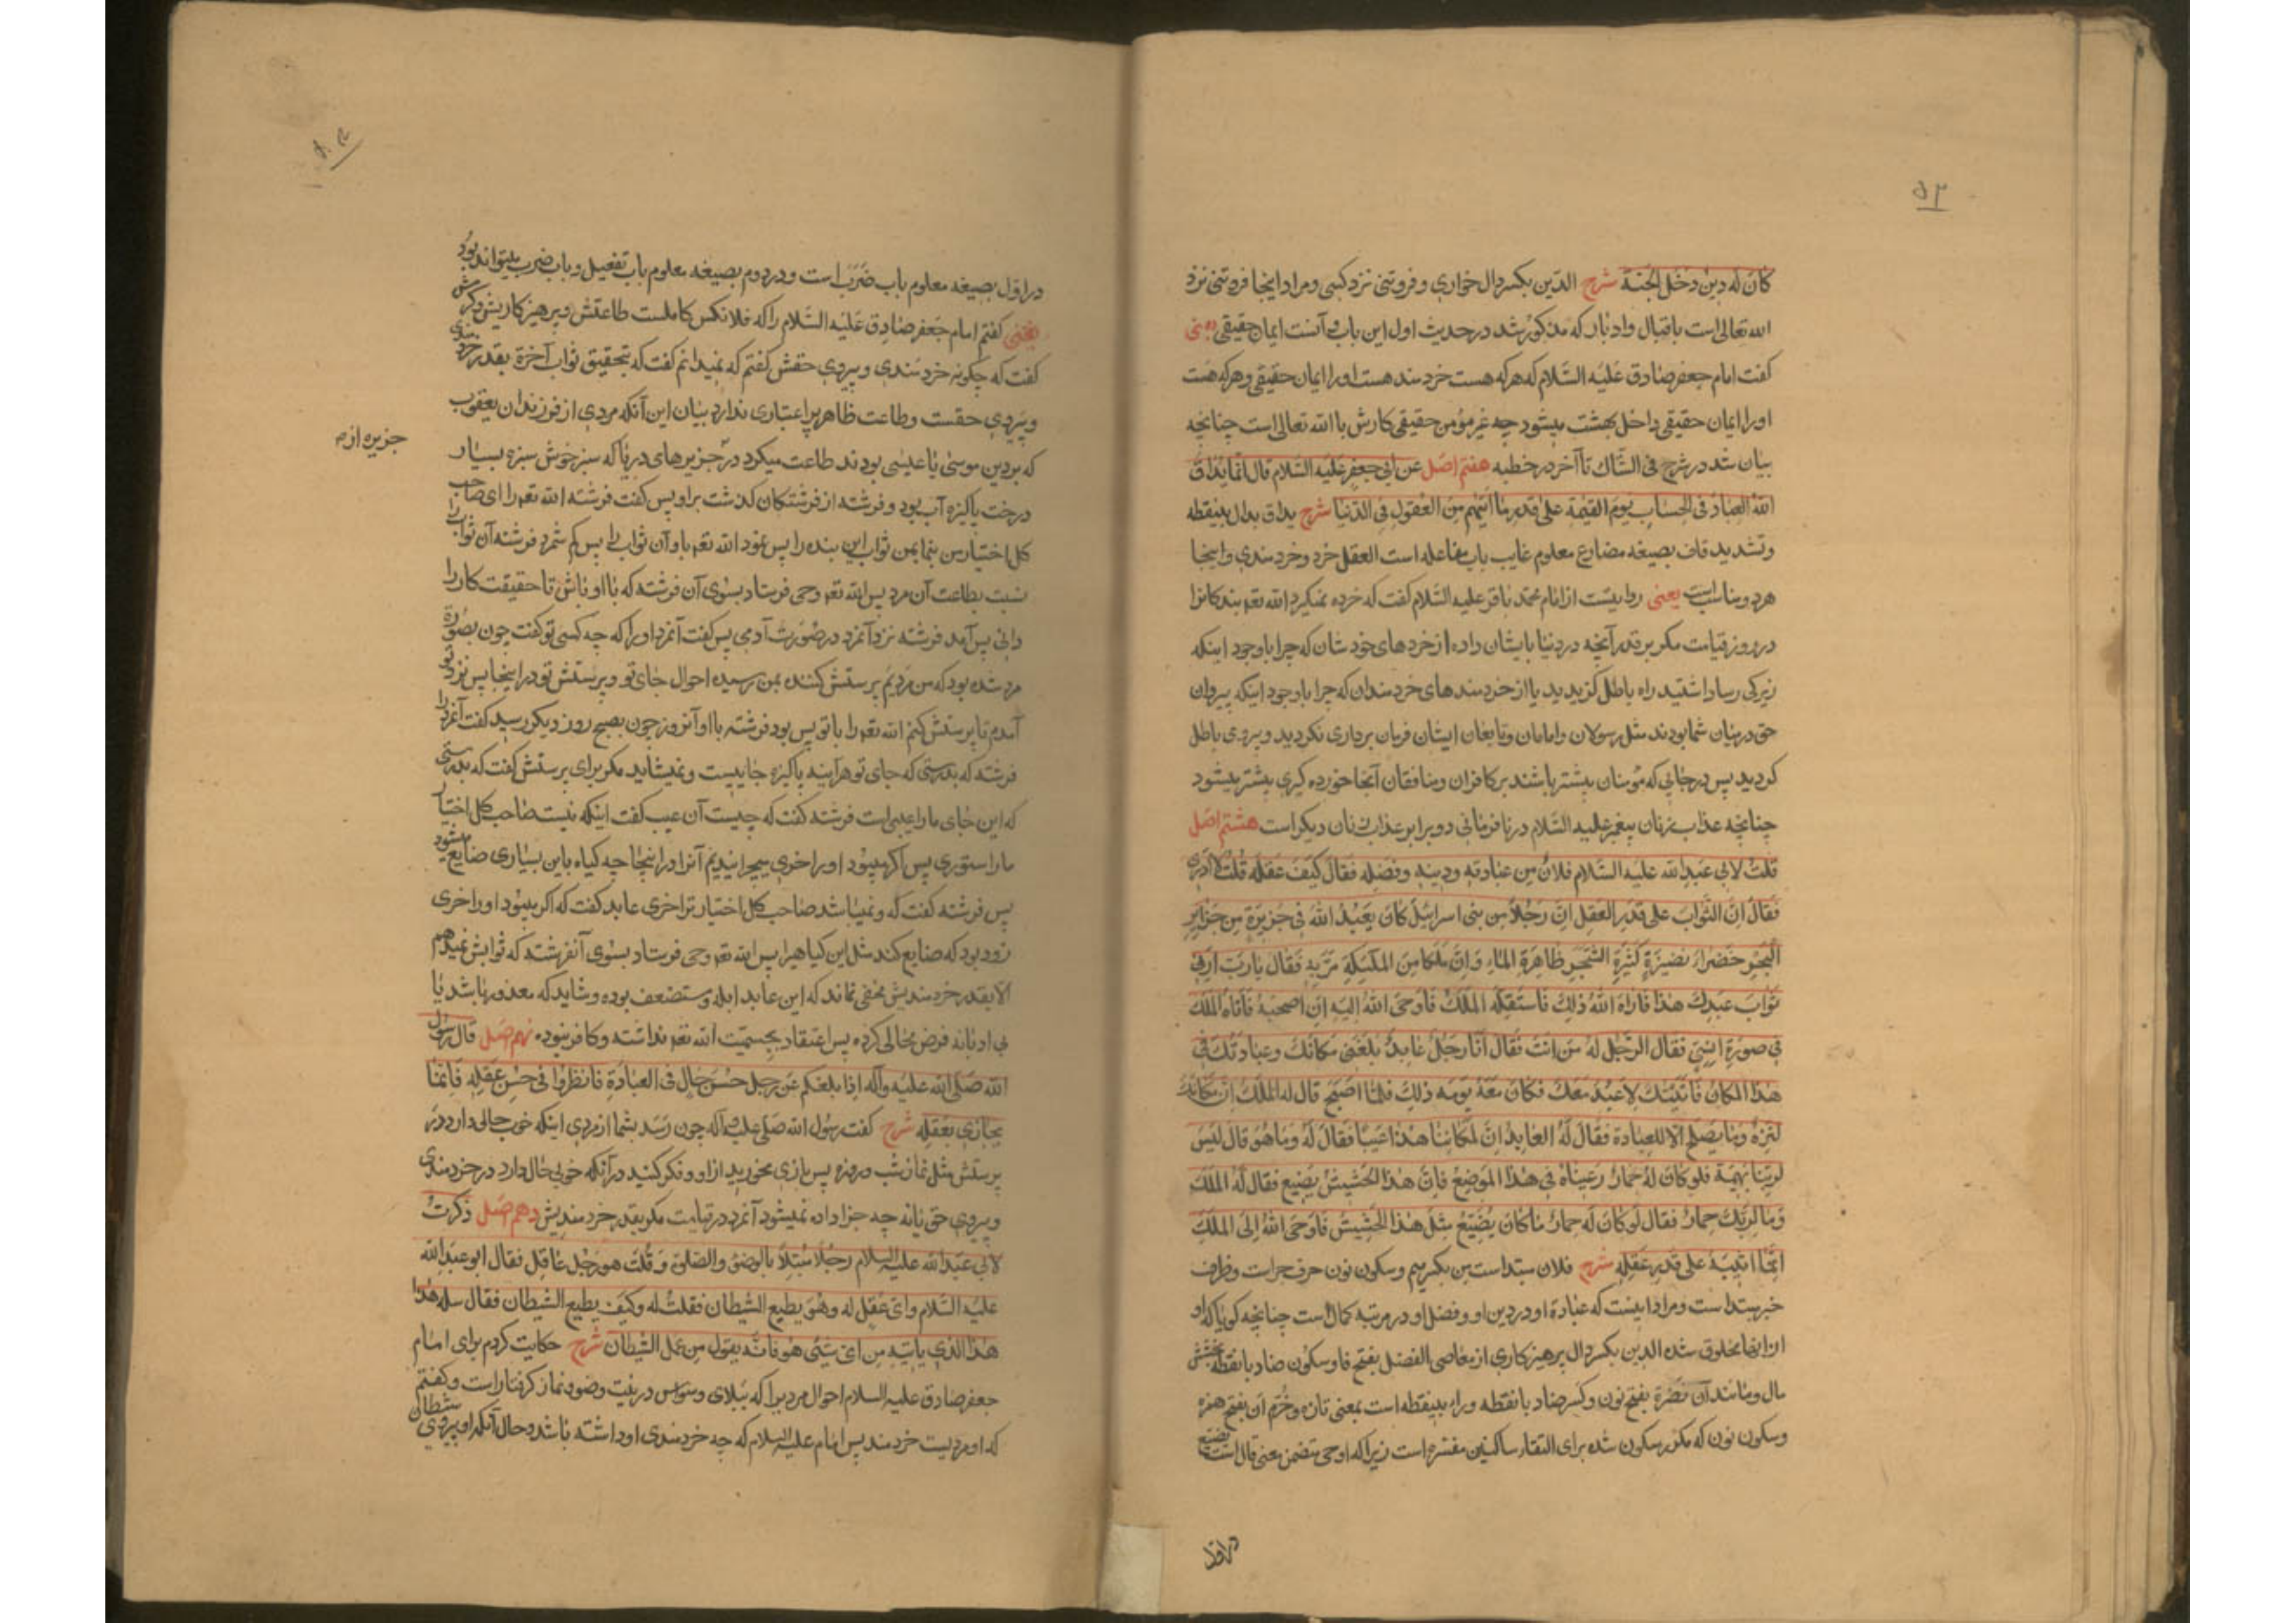 ۵۳
كانَ لَه دِينٌ دخَل الجنة شرح الدّين بكسر دال خواري و فروتني نزد كسى و مراد اينجا فروتنى نزد
الله تعالى است باقبال و ادبار كه مذكور شد در حديث اول اين باب و آنست ايمان حقيقى يعنى
كفت امام جعفر صادق عَلَيْه السَّلام كه هر كه هست خردمند هست او را ايمان حقيقى و هر كه هست
او را ايمان حقيقى داخل بهشت ميشود چه غير مؤمن حقيقى كارش با الله تعالى است چنانچه
بيان شد در شرح فى الشّاك تا آخر در خطبه هفتم اصل عن ابى جعفر عليه السّلام قال انّما يداقّ
الله العباد فى الحساب يوم القيمة على قدر ما اتيهم من العقول فى الدّنيا شرح يداق بدال بينقطه
و تشديد قاف بصيغه مضارع معلوم غايب باب مفاعله است العقل خرد و خردمندى و اينجا
هر دو مناسب است يعنى روايتست از امام محمّد باقر عليه السّلام كفت كه خرده نميكيرد الله تعه بندكانرا
در روز قيامت مكر بر قدر آنچه در دنيا بايشان داده از خردهاى خودشان كه چرا با وجود اينكه
زيركى رسا داشتيد راه باطل كزيديد يا از خردمندهاى خردمندان كه چرا با وجود اينكه پيروان
حق در ميان شما بودند مثل رسولان و امامان و تابعان ايشان فرمان بردارى نكرديد و پيروى باطل
كرديد پس در جائى كه مؤمنان بيشتر باشند بر كافران و منافقان آنجا خورده كيرى بيشتر ميشود
چنانچه عذاب زنان پيغمبر عليه السّلام در نافرمانى دو برابر عذاب زنان ديكر است هشتم اصل
قلتُ لابى عَبدِ الله عليه السّلام فلانٌ مِن عبادته و دينه و فضله فقال كيفَ عقله قلتُ لا ادرى
فَقالَ انّ الثّوابَ على قَدرِ العقلِ انّ رَجُلاً من بنى اسرائيل كانَ يَعبُدُ اللهَ فى جزيرةٍ من جزاير
البحر خَضراءَ نَضِرَةٍ كثيرةِ الشّجر ظاهرة الماءِ وَ انّ ملكا من الملئكة مرّ به فقال يا ربّ ارنى
ثوابَ عبدِكَ هذا فاراه اللهُ ذلك فاستقلّه الملكُ فاوحى اللهُ اليه انِ اصحبه فاتاه الملك
فى صورة انسىّ فقال الرّجل له من انت فقال انا رجل عابد بلغنى مكانك و عبادتك فى
هذا المكان فاتيتك لاعبد معك فكان معه يومه ذلك فلمّا اصبح قال له الملك انّ مكانك
لنزه و ما يصلح الّا للعبادة فقال له العابد انّ لمكاننا هذا عيباً فقال له و ما هو قال ليس
لربّنا بهيمة فلو كان له حمارٌ رعيناه فى هذا الموضع فانّ هذا الحشيش يضيع فقال له الملك
و ما لربّك حمار فقال لو كان له حمارٌ ما كان يضيّع مثل هذا الحشيش فاوحى الله الى الملك
انّما اثيبه على قدر عقله شرح فلان مبتداست من بكسر ميم و سكون نون حرف جر است و ظرف
خبر مبتداست و مراد اينست كه عبادة او و دين او و فضل او در مرتبه كمال است چنانچه كويا كه او
از اينها مخلوق شده الدين بكسر دال پرهيزكارى از معاصى الفضل بفتح فا و سكون ضاد با نقطه بخشش
مال و مانند آن نضرة بفتح نون و كسر ضاد با نقطه و راء بينقطه است بمعنى تازه و خُرّم ان بفتح همزه
و سكون نون كه مكسور شده براى التقاء ساكنين مفسّره است زيرا كه اوحى متضمن معنى قال است يضيع
در اول
در اوّل بصيغه معلوم باب ضَرَبَ است و در دوم بصيغه معلوم باب تفعيل و باب ضرب ميتواند بُود
يعنى كفتم امام جَعفر صادق عَلَيْه السَّلام را كه فلانكس كاملست طاعتش و پرهيزكاريش و كرمش
كفت كه چكونه خردمندى و پيروى حقش كفتم كه نميدانم كفت كه بتحقيق ثواب آخرة بقدر خردمندى
و پيروى حقست و طاعت ظاهر پر اعتبارى ندارد بيان اين آنكه مردى از فرزندان يعقوب
كه بر دين موسى يا عيسى بودند طاعت ميكرد در جزيرهاى دريا كه سبز خوش سبزه بسيار
جزيره از
درخت پاكيزه آب بود و فرشته از فرشتكان كذشت بر او پس كفت فرشته الله تعه را اى صاحب
كل اختيار من بنما بمن ثواب اين بنده را پس نمود الله تعه باو آن ثواب را پس كم شمرد فرشته آن ثواب را
نسبت بطاعت آن مرد پس الله تعه وحى فرستاد بسوى آن فرشته كه با او باش تا حقيقت كار را
دانى پس آمد فرشته نزد آنمرد در صورت آدمى پس كفت آنمرد او را كه چه كسى تو كفت چون بصورة
مرد شده بود كه من مرديم پرستش كننده بمن رسيده احوال جاى تو و پرستش تو در اينجا پس نزد تو
آمدم تا پرستش كنم الله تعه را با تو پس بود فرشته با او آنروز چون بصبح روز ديكر رسيد كفت آنمرد را
فرشته كه بدرستى كه جاى تو هرآينه پاكيزه جاييست و نميشايد مكر براى پرستش كفت كه بدرستى
كه اين جاى ما را عيبى است فرشته كفت كه چيست آن عيب كفت اينكه نيست صاحب كل اختيار
ما را ستورى پس اكر ميبود او را خرى ميچرانيديم آنرا در اينجا چه كياه باين بسيارى ضايع ميشود
پس فرشته كفت كه و نميباشد صاحب كل اختيار ترا خرى عابد كفت كه اكر ميبود او را خرى
زود بود كه ضايع كند مثل اين كياهيرا پس الله تعه وحى فرستاد بسوى آنفرشته كه ثوابش نميدهم
الّا بقدر خردمنديش مخفى نماند كه اين عابد ابله و مستضعف بوده و شايد كه معذور باشد يا
بى ادبانه فرض محالى كرده پس اعتقاد بجسميّت الله تعه نداشته و كافر نبوده نهم اصل قال رسول
الله صَلّى الله عَليه و آله اذا بلغكم عَن رجلٍ حُسنُ حالٍ فى العبادة فانظروا فى حُسن عقله فانّما
يجازى بعقله شرح كفت رسول الله صلى عليه و آله چون رسَد بشما از مردى اينكه خوب حالى دارد در
پرستش مثل نماز شب و روزه پس بازى مخوريد از او و فكر كنيد در آنكه خوبى حال دارد در خردمندى
و پيروى حق يا نه چه جزا داده نميشود آنمرد در قيامت مكر بقدر خردمنديش دهم اصل ذكرت
لابى عَبدِ الله عليه السلام رجلاً مبتلاً بالوضوء والصّلوة وَ قُلت هو رَجُل عاقل فقال ابو عبد الله
عَليه السّلام و اىّ عقلٍ له و هُوَ يطيع الشيطان فقلت له و كيف يطيع الشيطان فقال سله هذا
هذا الذى ياتيه من اىّ شئ هو فانّه يقول من عمل الشيطان شرح حكايت كردم براى امام
جعفر صادق عليه السلام احوال مرديرا كه ببلاى وسواس در نيّت وضو و نماز كرفتار است و كفتم
كه او مرديست خردمند پس امام عليه السلام كه چه خردمندى او داشته باشد و حال آنكه او پيروى شيطان